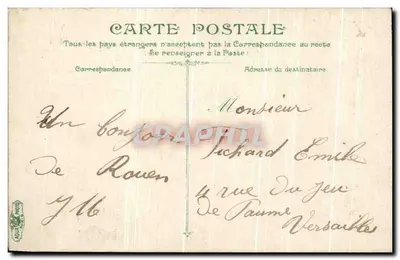 CARTE POSTALE
Tous les pays étrangers n'acceptent pas la Correspondance au recto
Se renseigner à la Poste
Correspondance
Adresse du destinataire
Un bonjour
de Rouen
JM
Monsieur
Pichard Emile
4 rue du Jeu
de Paume
Versailles
CPAPHIL